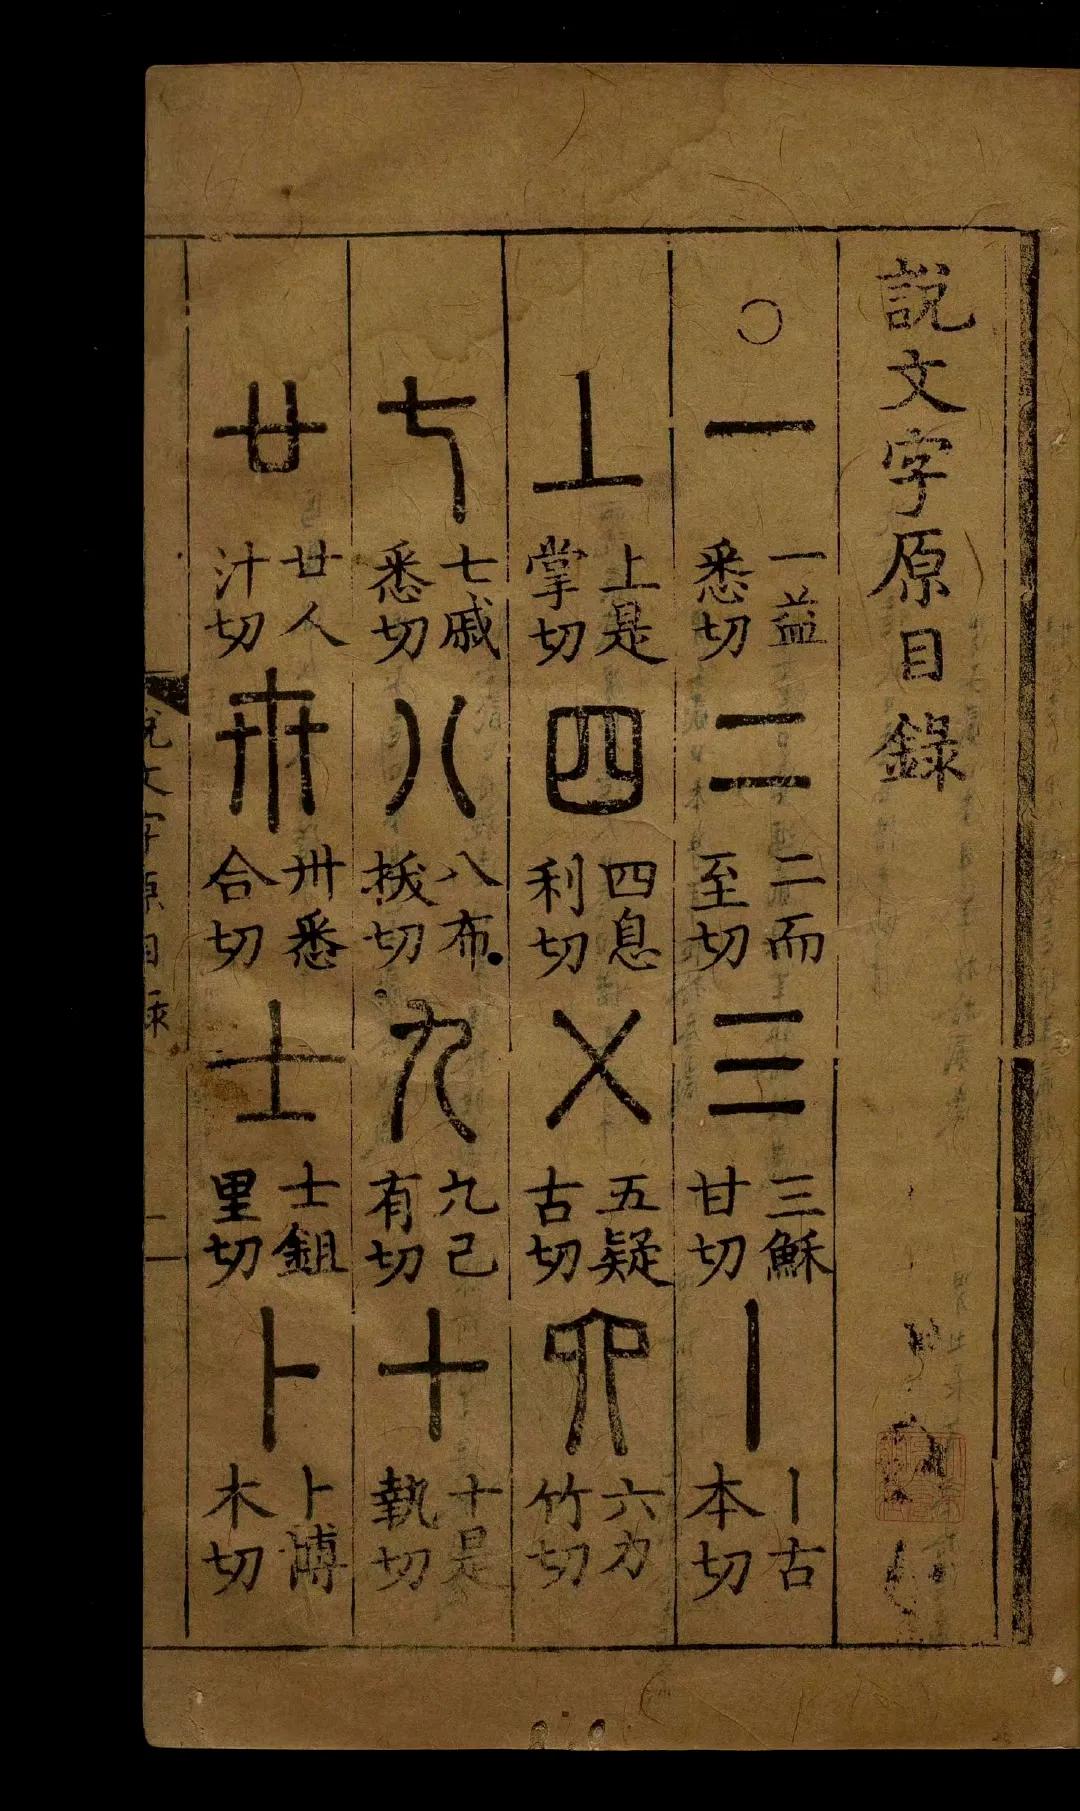 說文字原目錄
○
一 一益悉切
二 二而至切
三 三穌甘切
丨 丨古本切
丄 上是掌切
四 四息利切
㐅 五疑古切
六 六力竹切
七 七戚悉切
八 八布拔切
九 九己有切
十 十是執切
廿 廿人汁切
卅 卅悉合切
士 士鉏里切
卜 卜博木切
說文字原目錄